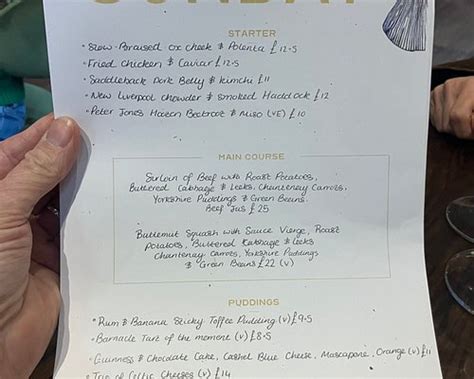 SUNDAY
STARTER
• Slow-Braised Ox cheek & Polenta £12.5
• Fried Chicken & Caviar £12.5
• Saddleback Pork Belly & Kimchi £11
• New Liverpool Chowder & Smoked Haddock £12
• Peter Jones Honey Beetroot & Miso (VE) £10
MAIN COURSE
Sirloin of Beef with Roast Potatoes,
Buttered Cabbage & Leeks, Chanteney Carrots,
Yorkshire Puddings & Green Beans.
Beef Jus £25
Butternut Squash with Sauce Vierge, Roast
Potatoes, Buttered Cabbage & Leeks
Chanteney Carrots, Yorkshire Puddings
& Green Beans £22 (V)
PUDDINGS
• Rum & Banana Sticky Toffee Pudding (V) £9.5
• Barnacle Tart of the moment (V) £8.5
• Guinness & Chocolate Cake, Cashel Blue Cheese, Mascarpone, Orange (V) £11
• Trio of Celtic Cheeses (V) £14